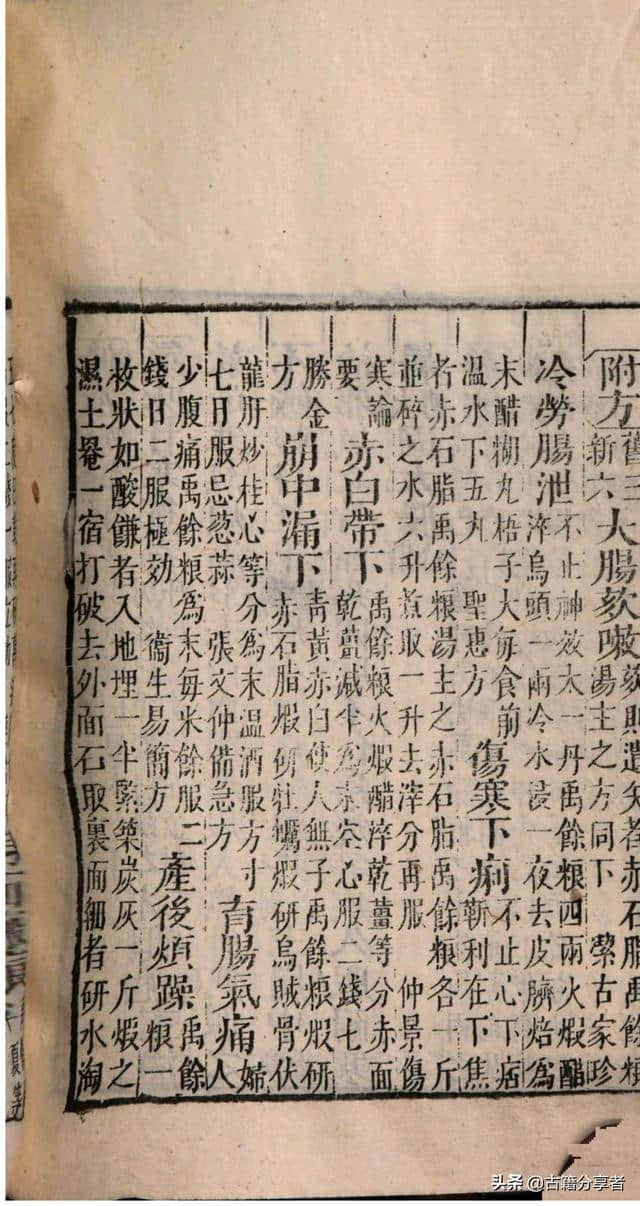 附方舊三
新六
大腸欬嗽
欬則遺矢者赤石脂禹餘粮
湯主之方同下 縈古家珍
冷勞腸泄
不止神效太一丹禹餘粮四兩火煆醋
淬烏頭一兩冷水浸一夜去皮臍焙為
末醋糊丸梧子大每食前
溫水下五丸 聖惠方
傷寒下痢
不止心下痞
利在下焦
者赤石脂禹餘粮湯主之赤石脂禹餘粮各一斤
並碎之水六升煮取一升去滓分再服 仲景傷
寒論
要
赤白帶下
禹餘粮火煆醋淬乾薑等分赤面
乾薑減半為末空心服二錢七
勝金
方
崩中漏下
青黃赤白使人無子禹餘粮煆研
赤石脂煆研牡蠣煆研烏賊骨伏
龍肝炒桂心等分為末溫酒服方寸
七日服忌葱蒜 張文仲備急方
育腸氣痛
婦
人
少腹痛禹餘粮為末每米餘服二
錢日二服極効 衛生易簡方
產後煩躁
禹餘
粮一
枚狀如酸者入地埋一半緊築炭灰一斤煆之
濕土罨一宿打破去外面石取裏面細者研水淘
头条 @古籍分享者